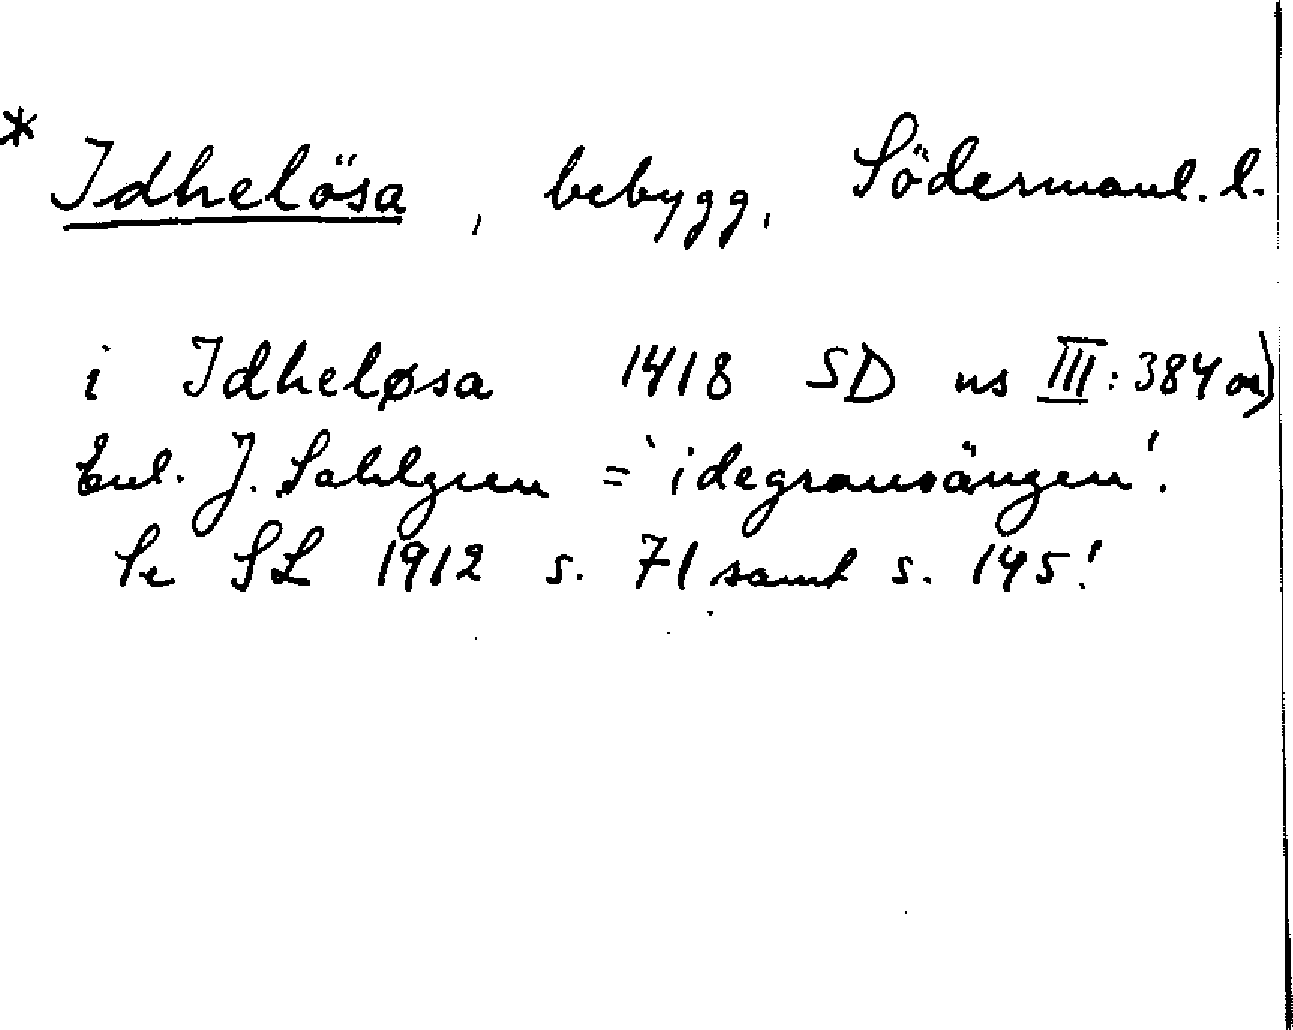 * Idhelösa, bebygg, Södermanl. l.
i Idheløsa 1418 SD ns III: 384 or)
Enl. J. Sahlgren = 'idegransängen'.
Se SL 1912 s. 71 samt s. 145!